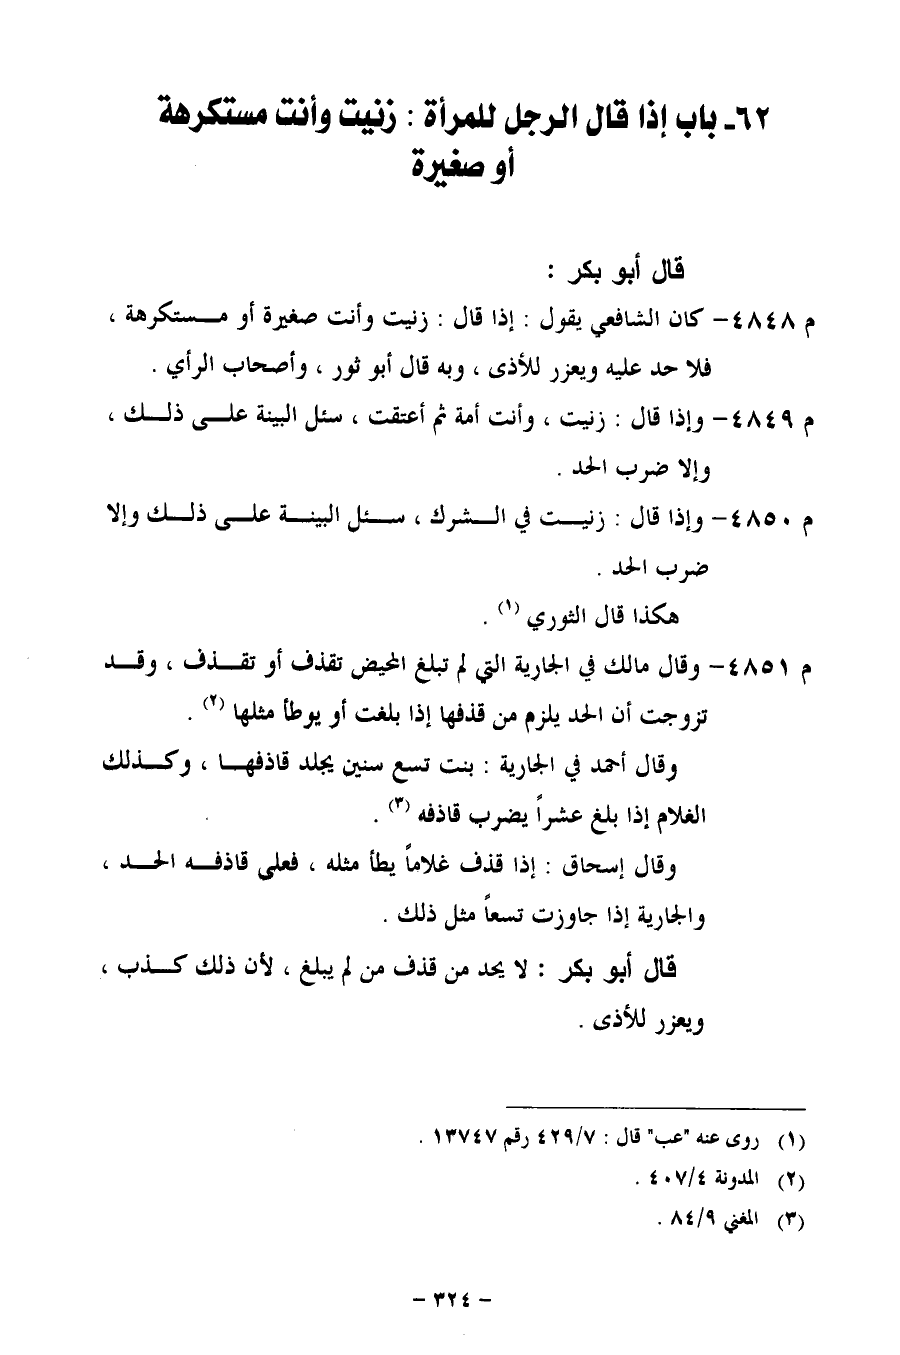 ٦٢ـ باب إذا قال الرجل للمرأة : زنيت وأنت مستكرهة
أو صغيرة
قال أبو بكر :
م ٤٨٤٨– كان الشافعي يقول : إذا قال : زنيت وأنت صغيرة أو مستكرهة ،
فلا حد عليه ويعزر للأذى ، وبه قال أبو ثور ، وأصحاب الرأي .
م ٤٨٤٩– وإذا قال : زنيت ، وأنت أمة ثم أعتقت ، سئل البينة على ذلك ،
وإلا ضرب الحد .
م ٤٨٥٠– وإذا قال : زنيت في الشرك ، سئل البينة على ذلك وإلا
ضرب الحد .
هكذا قال الثوري (١) .
م ٤٨٥١– وقال مالك في الجارية التي لم تبلغ المحيض تقذف أو تقذف ، وقد
تزوجت أن الحد يلزم من قذفها إذا بلغت أو يوطأ مثلها (٢) .
وقال أحمد في الجارية : بنت تسع سنين يجلد قاذفها ، وكذلك
الغلام إذا بلغ عشراً يضرب قاذفه (٣) .
وقال إسحاق : إذا قذف غلاماً يطأ مثله ، فعلى قاذفه الحد ،
والجارية إذا جاوزت تسعاً مثل ذلك .
قال أبو بكر : لا يحد من قذف من لم يبلغ ، لأن ذلك كذب ،
ويعزر للأذى .
(١) روى عنه "عب" قال : ٤٢٩/٧ رقم ١٣٧٤٧ .
(٢) المدونة ٤٠٧/٤ .
(٣) المغني ٨٤/٩ .
– ٣٢٤ –